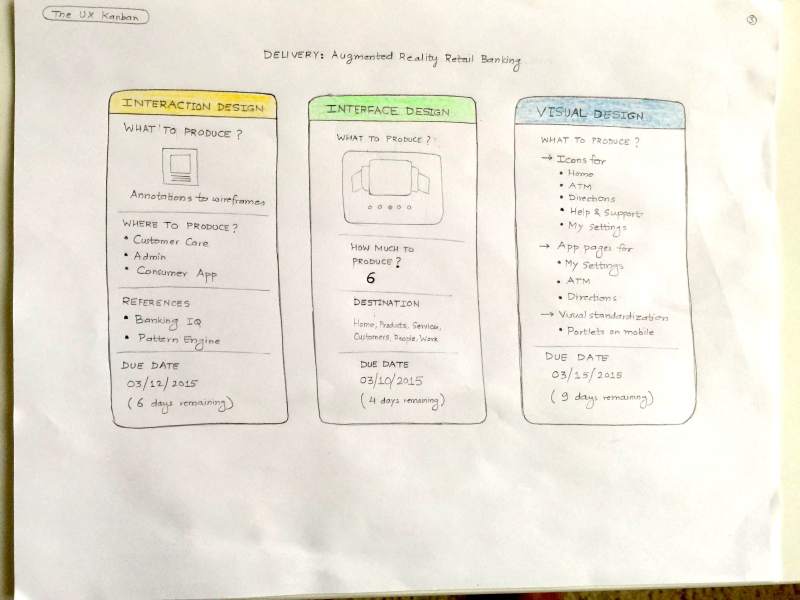 The UX Kanban
3
DELIVERY: Augmented Reality Retail Banking
INTERACTION DESIGN
WHAT TO PRODUCE?
Annotations to wireframes
WHERE TO PRODUCE?
• Customer Care
• Admin
• Consumer App
REFERENCES
• Banking IQ
• Pattern Engine
DUE DATE
03/12/2015
(6 days remaining)
INTERFACE DESIGN
WHAT TO PRODUCE?
HOW MUCH TO
PRODUCE?
6
DESTINATION
Home, Products, Services,
Customers, People, Work
DUE DATE
03/10/2015
(4 days remaining)
VISUAL DESIGN
WHAT TO PRODUCE?
→ Icons for
• Home
• ATM
• Directions
• Help & Support
• My Settings
→ App pages for
• My Settings
• ATM
• Directions
→ Visual standardization
• Portlets on mobile
DUE DATE
03/15/2015
(9 days remaining)